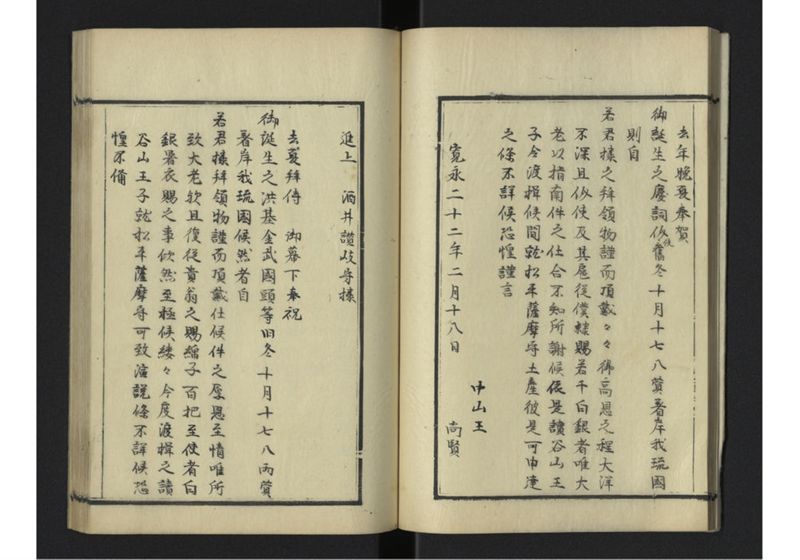 去年晩夏奉賀
御誕生之慶詞仍舊冬十月十七八蓂著岸我琉國
則自
若君様之拜領物謹而頂戴々々彿高恩之程大洋
不深且仍使及其扈従僕隸賜若干白銀者唯大
老以指南件之仕合不知所謝候依是讀谷山王
子令渡楫候間就松平薩摩守土產彼是可申達
之條不詳候恐惶謹言
寛永二十二年二月十八日
中山王
尚賢
進上 酒井讃岐守様
去夏拜侍 御幕下奉祝
御誕生之洪基金武國頭等旧冬十月十七八両蓂
著岸我琉國候然者自
若君様拜領物謹而頂戴仕候件之厚恩至情唯所
致大老欤且復従貴翁之賜繻子百把至使者白
銀暑衣賜之事欣然至極候縷々今度渡楫之讀
谷山王子就松平薩摩守可致演説條不詳候恐
惶不備